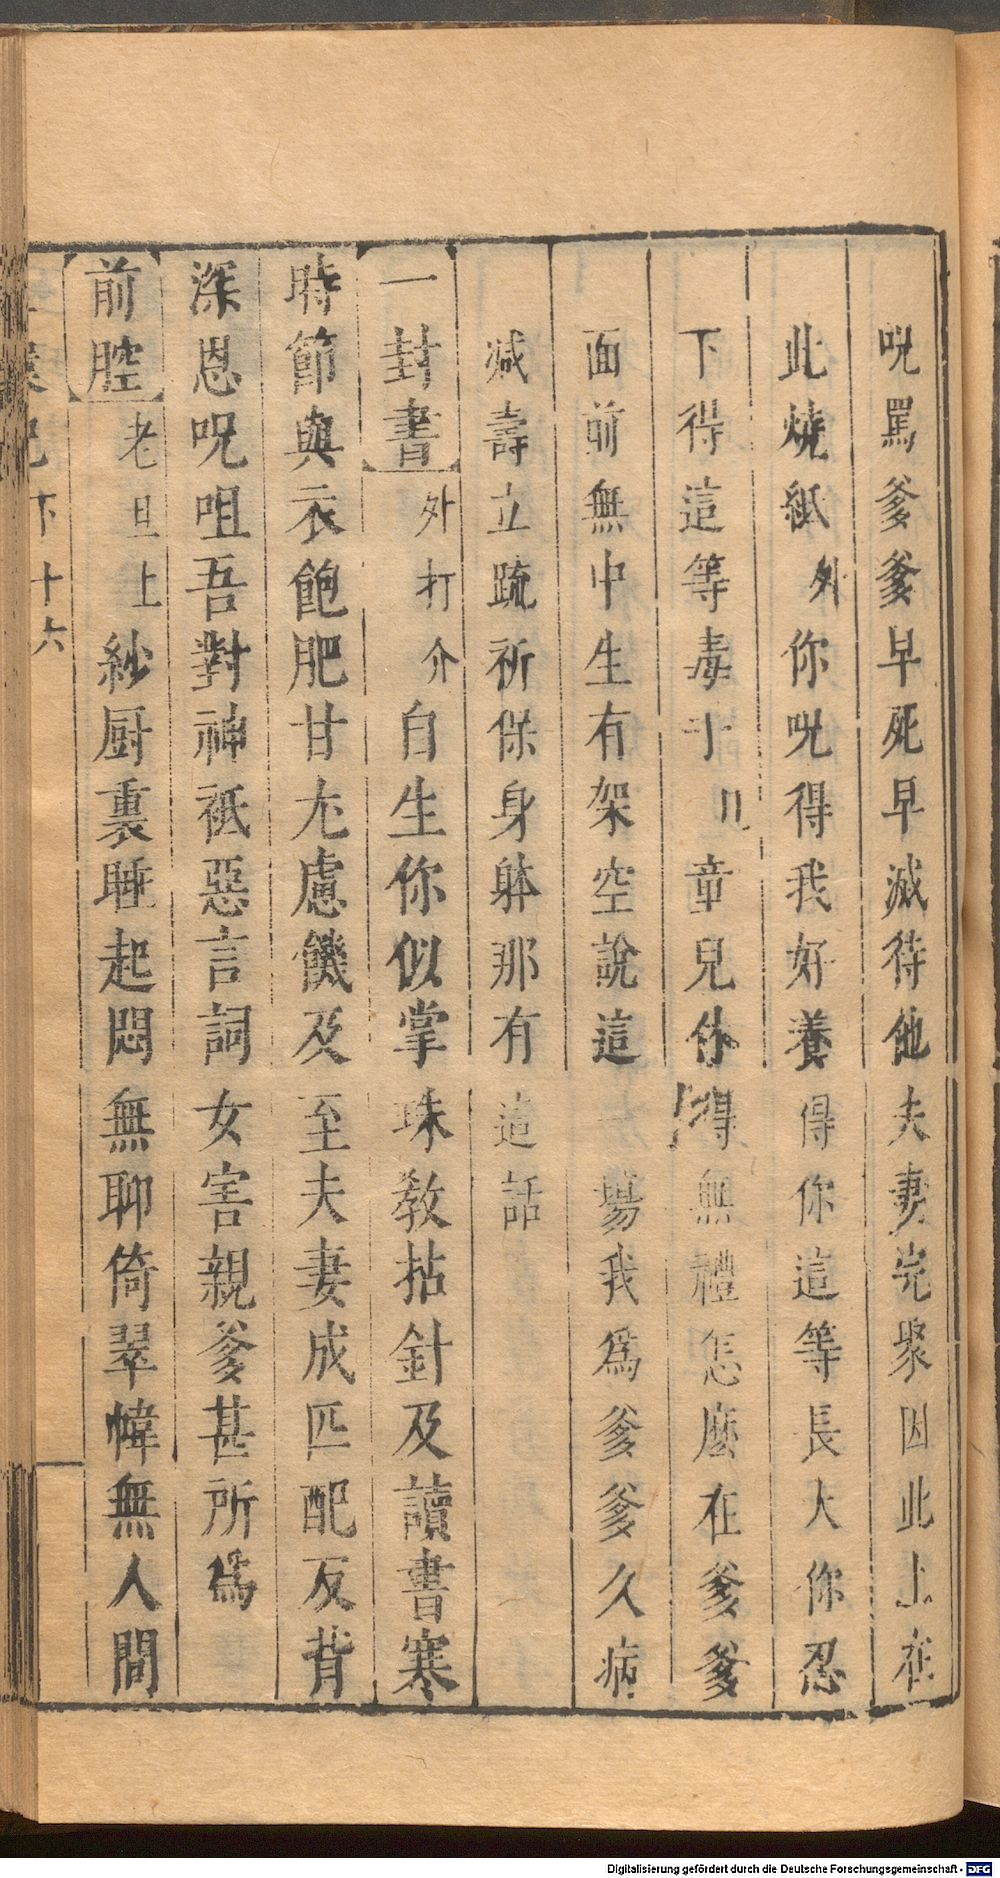 呪罵爹爹早死早滅待他夫妻完聚因此上在
此燒紙外你呪得我好養得你這等長大你忍
下得這等毒手 童兒你 得無禮怎麼在爹爹
面前無中生有架空說這一場我爲爹爹久病
減壽立疏祈保身躰那有這話
一封書外打介自生你似掌珠教拈針及讀書寒
時節與衣飽肥甘尤慮饑及至夫妻成匹配反背
深恩呪咀吾對神祗惡言詞女害親爹甚所爲
前腔老旦上紗厨裏睡起悶無聊倚翠幃無人間
記下十六
Digitalisierung gefördert durch die Deutsche Forschungsgemeinschaft - DFG